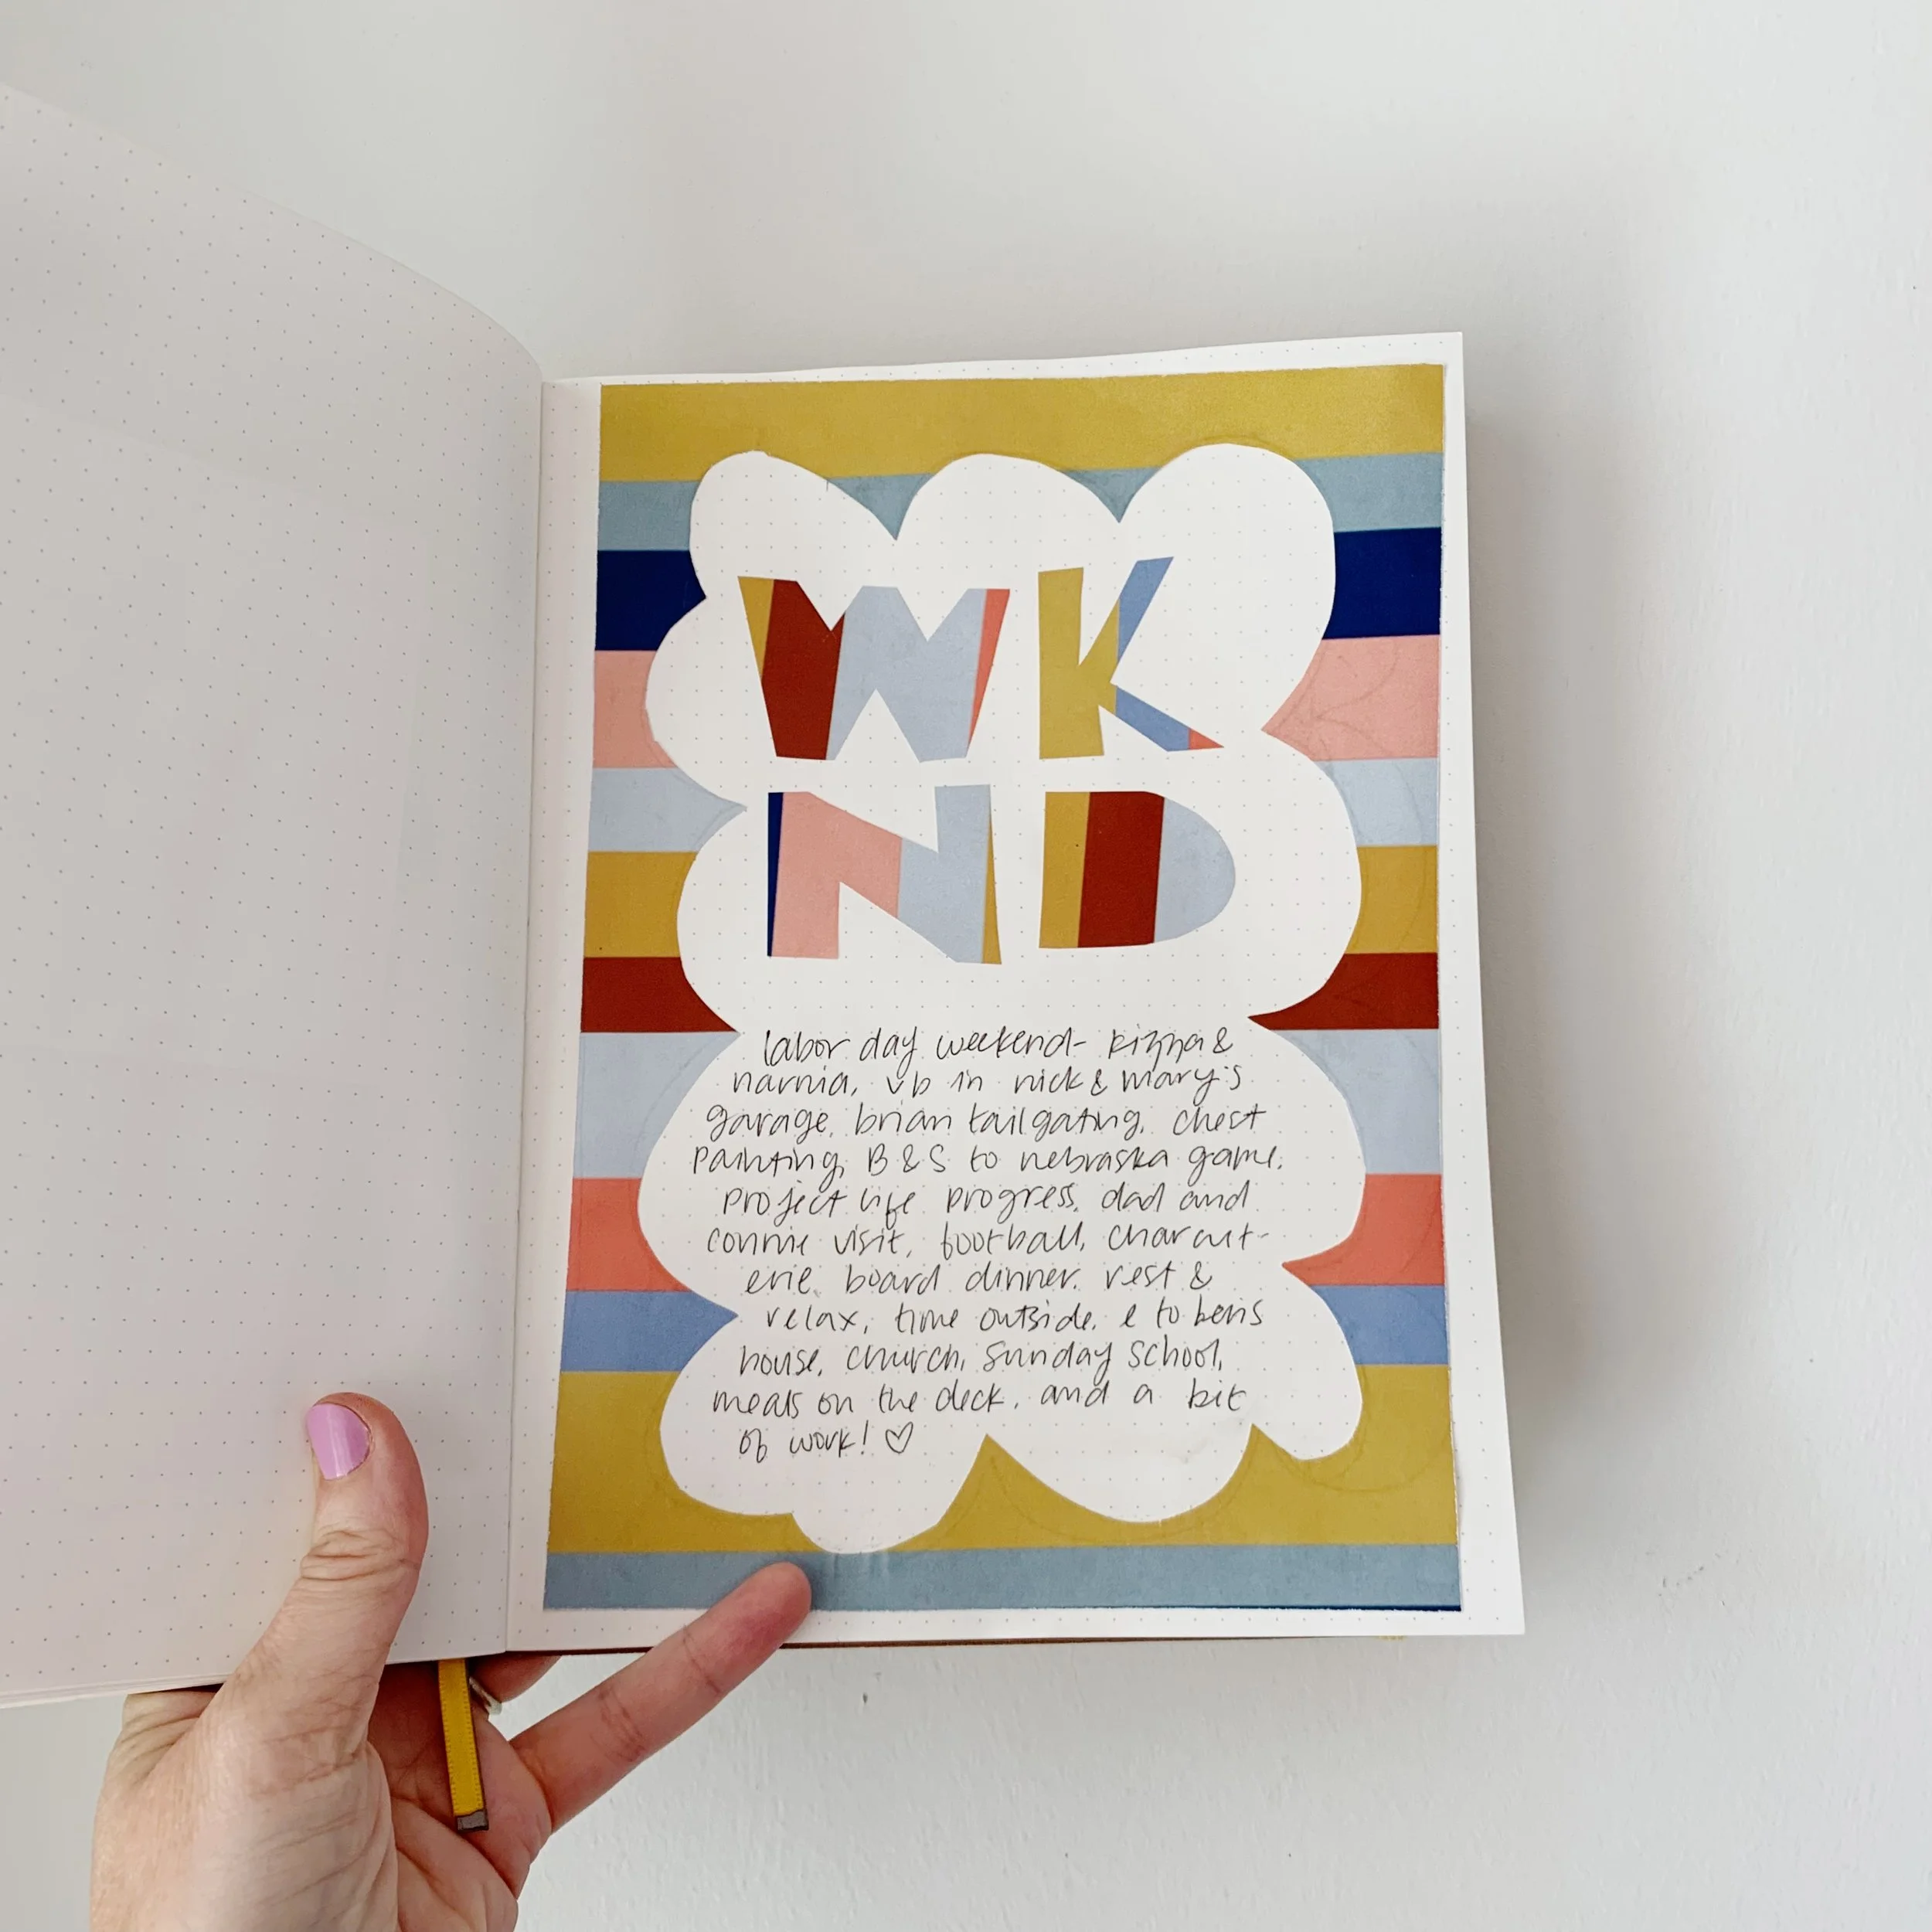 WK
ND
labor day weekend- pizza &
narnia, vb in nick & mary's
garage, brian tailgating, chest
painting, B & S to nebraska game,
project life progress, dad and
connie visit, football, charcut-
erie board dinner, rest &
relax, time outside, e to ben's
house, church, sunday school,
meals on the deck, and a bit
of work! ♡